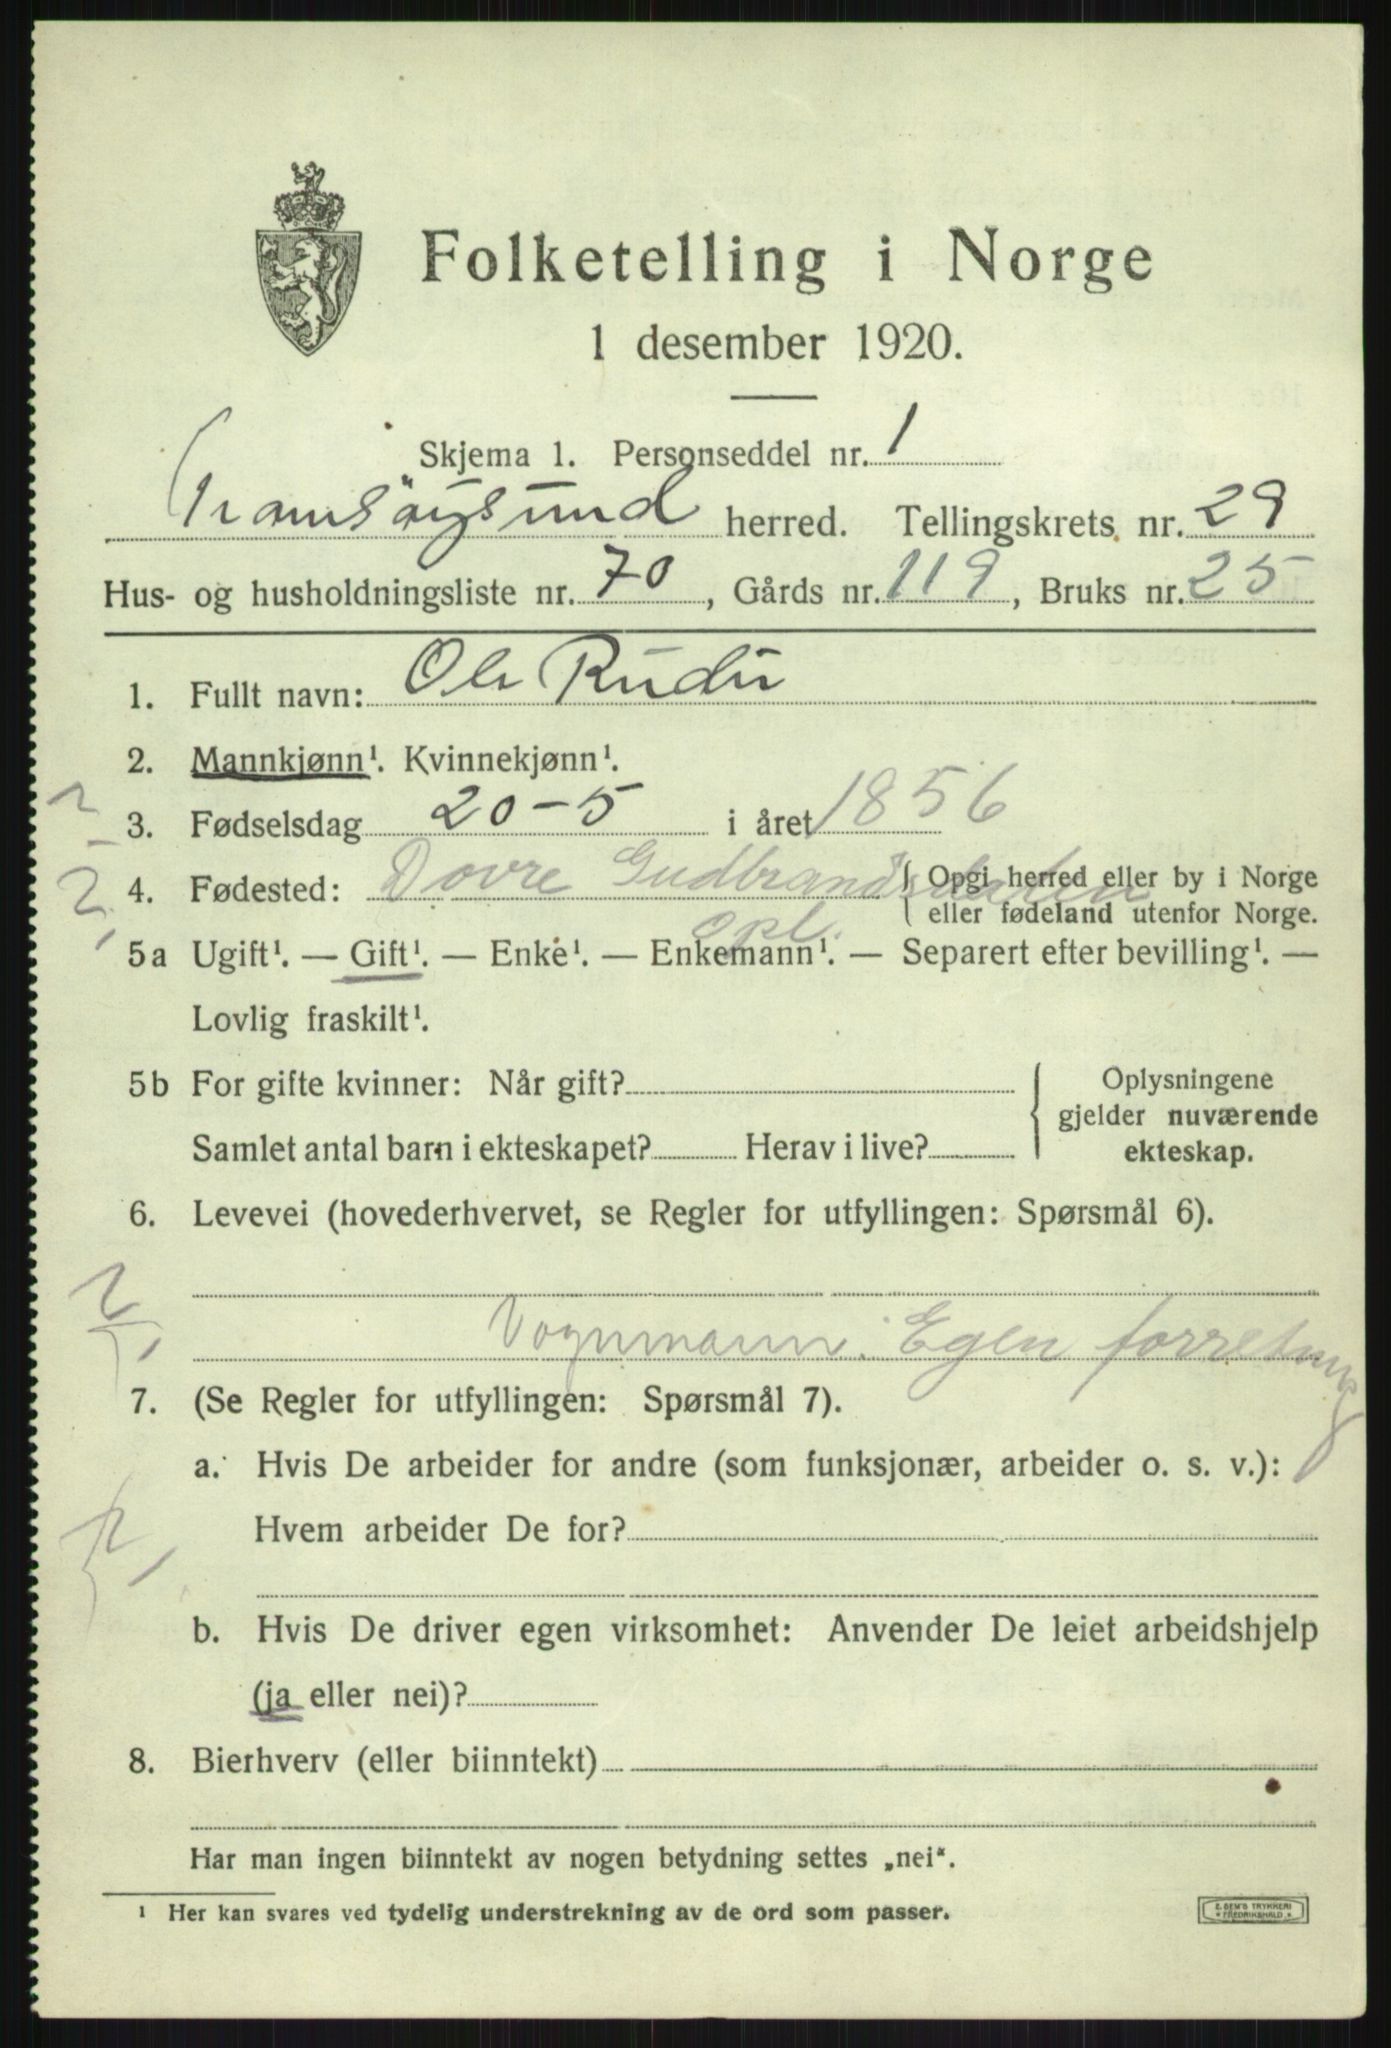 Folketelling i Norge
1 desember 1920.
Skjema 1. Personseddel nr. 1
Tromsöysund herred. Tellingskrets nr. 29
Hus- og husholdningsliste nr. 70, Gårds nr. 119, Bruks nr. 25
1. Fullt navn: Ole
2. Mannkjønn¹. Kvinnekjønn¹.
3. Fødselsdag 20-5 i året 1856
4. Fødested: Dovre Gudbrandsdalen Opgi herred eller by i Norge
eller fødeland utenfor Norge.
Opl.
5a Ugift¹. — Gift¹. — Enke¹. — Enkemann¹. — Separert efter bevilling¹. —
Lovlig fraskilt¹.
5b For gifte kvinner: Når gift? Oplysningene
gjelder nuværende
Samlet antal barn i ekteskapet? Herav i live? ekteskap.
6. Levevei (hovederhvervet, se Regler for utfyllingen: Spørsmål 6).
Vognmann. Egen forretning
7. (Se Regler for utfyllingen: Spørsmål 7).
a. Hvis De arbeider for andre (som funksjonær, arbeider o. s. v.):
Hvem arbeider De for?
b. Hvis De driver egen virksomhet: Anvender De leiet arbeidshjelp
(ja eller nei)?
8. Bierhverv (eller biinntekt)
Har man ingen biinntekt av nogen betydning settes „nei“.
¹ Her kan svares ved tydelig understrekning av de ord som passer.
E. SEM'S TRYKKERI
* FREDRIKSHALD *